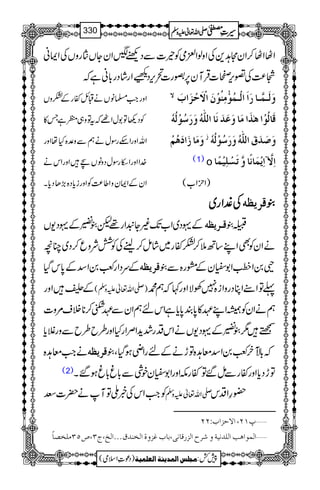 سیرتِ مصطفیٰ صلی اللہ تعالیٰ علیہ وسلم
330
اٹھا اٹھا کر ان مجاہدین کی اولوالعزمی کو حیرت سے دیکھنے لگیں ان جاں نثاروں کی ایمانی
شجاعت کی تصویر صفحات قرآن پر بصورت تحریر دیکھئے ارشاد ربانی ہے کہ
وَ لَمَّا رَاَ الْمُؤْمِنُوْنَ الْاَحْزَابَ ۙ
قَالُوْا هٰذَا مَا وَعَدَنَا اللّٰهُ وَ رَسُوْلُهٗ
وَ صَدَقَ اللّٰهُ وَ رَسُوْلُهٗ ٘ وَ مَا زَادَهُمْ
اِلَّاۤ اِیْمَانًا وَّ تَسْلِیْمًا ۝ (1)
(احزاب)
اور جب مسلمانوں نے قبائل کفار کے لشکروں
کو دیکھا تو بول اٹھے کہ یہ تو وہی منظر ہے جس کا
اللہ اور اسکے رسول نے ہم سے وعدہ کیا تھا اور
خدا اور اسکا رسول دونوں سچے ہیں اور اس نے
ان کے ایمان و اطاعت کو اور زیادہ بڑھا دیا۔
بنو قریظہ کی غداری
قبیلہ بنو قریظہ کے یہودی اب تک غیر جانبدار تھے لیکن بنو نضیر کے یہودیوں
نے ان کو بھی اپنے ساتھ ملا کر لشکر کفار میں شامل کر لینے کی کوشش شروع کر دی چنانچہ
حیی بن اخطب ابو سفیان کے مشورہ سے بنو قریظہ کے سردار کعب بن اسد کے پاس گیا
پہلے تو اس نے اپنا دروازہ نہیں کھولا اور کہا کہ ہم محمد (صلی اللہ تعالیٰ علیہ وسلم) کے حلیف ہیں اور
ہم نے ان کو ہمیشہ اپنے عہد کا پابند پایا ہے اس لئے ہم ان سے عہد شکنی کرنا خلاف مروت
سمجھتے ہیں مگر بنو نضیر کے یہودیوں نے اس قدر شدید اصرار کیا اور طرح طرح سے ورغلایا
کہ بالآخر کعب بن اسد معاہدہ توڑنے کے لئے راضی ہو گیا، بنو قریظہ نے جب معاہدہ
توڑ دیا اور کفار سے مل گئے تو کفار مکہ اور ابو سفیان خوشی سے باغ باغ ہو گئے۔ (2)
حضور اقدس صلی اللہ تعالیٰ علیہ وسلم کو جب اس کی خبر ملی تو آپ نے حضرت سعد
۔۔۔۔۔پ۲۱، الاحزاب: ۲۲
۔۔۔۔۔المواهب اللدنية و شرح الزرقانی، باب غزوة الخندق...الخ، ج۳، ص۳۵ ملخصاً
پیش کش: مجلس المدينة العلمية (دعوتِ اسلامی)